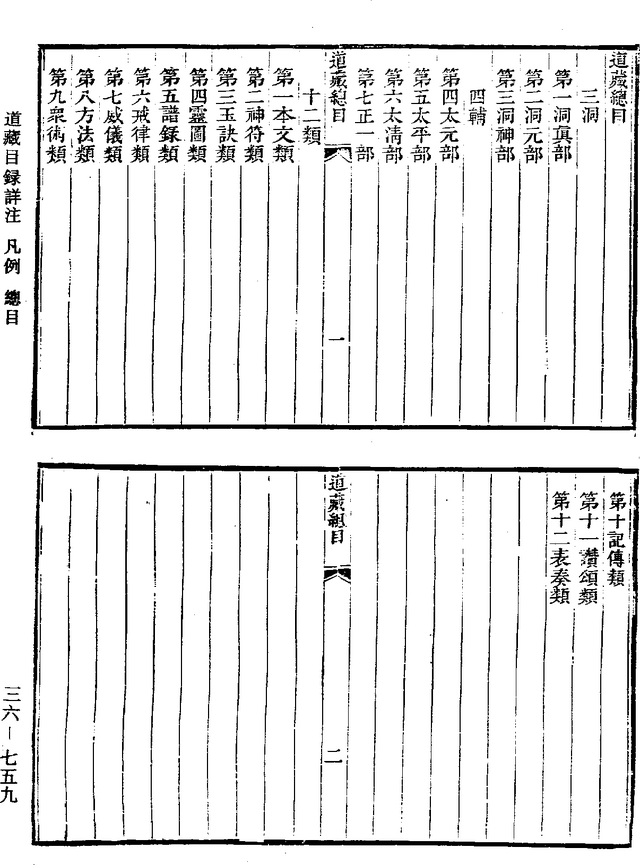 道藏總目
三洞
第一洞眞部
第二洞元部
第三洞神部
四輔
第四太元部
第五太平部
第六太淸部
第七正一部
道藏總目 一
十二類
第一本文類
第二神符類
第三玉訣類
第四靈圖類
第五譜錄類
第六戒律類
第七威儀類
第八方法類
第九衆術類
道藏目録詳注 凡例 總目
第十記傳類
第十一讚頌類
第十二表奏類
道藏總目 二
三六－七五九